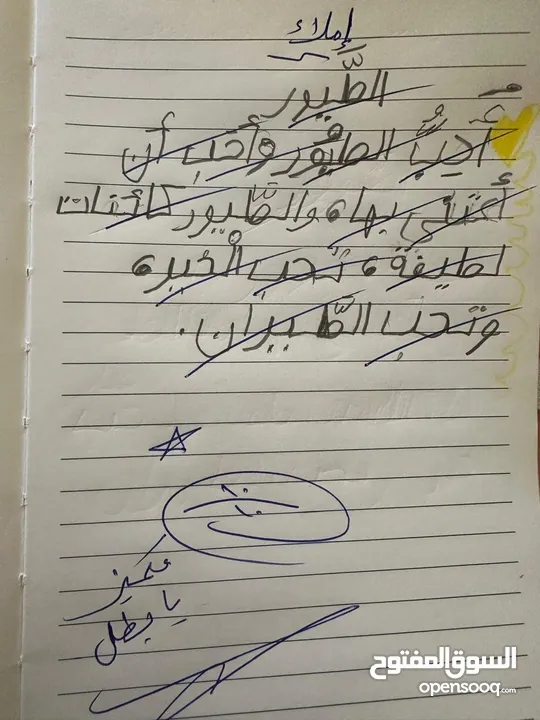 إملاء
الطّيور
أُحِبُّ الطيور وأحب أن
أعتني بها، والطّيور كائنات
لطيفة، تحب الخبز،
وتحب الطّيران.
١٠
١٠
متميز
يا بطل
السوق المفتوح
opensooq.com